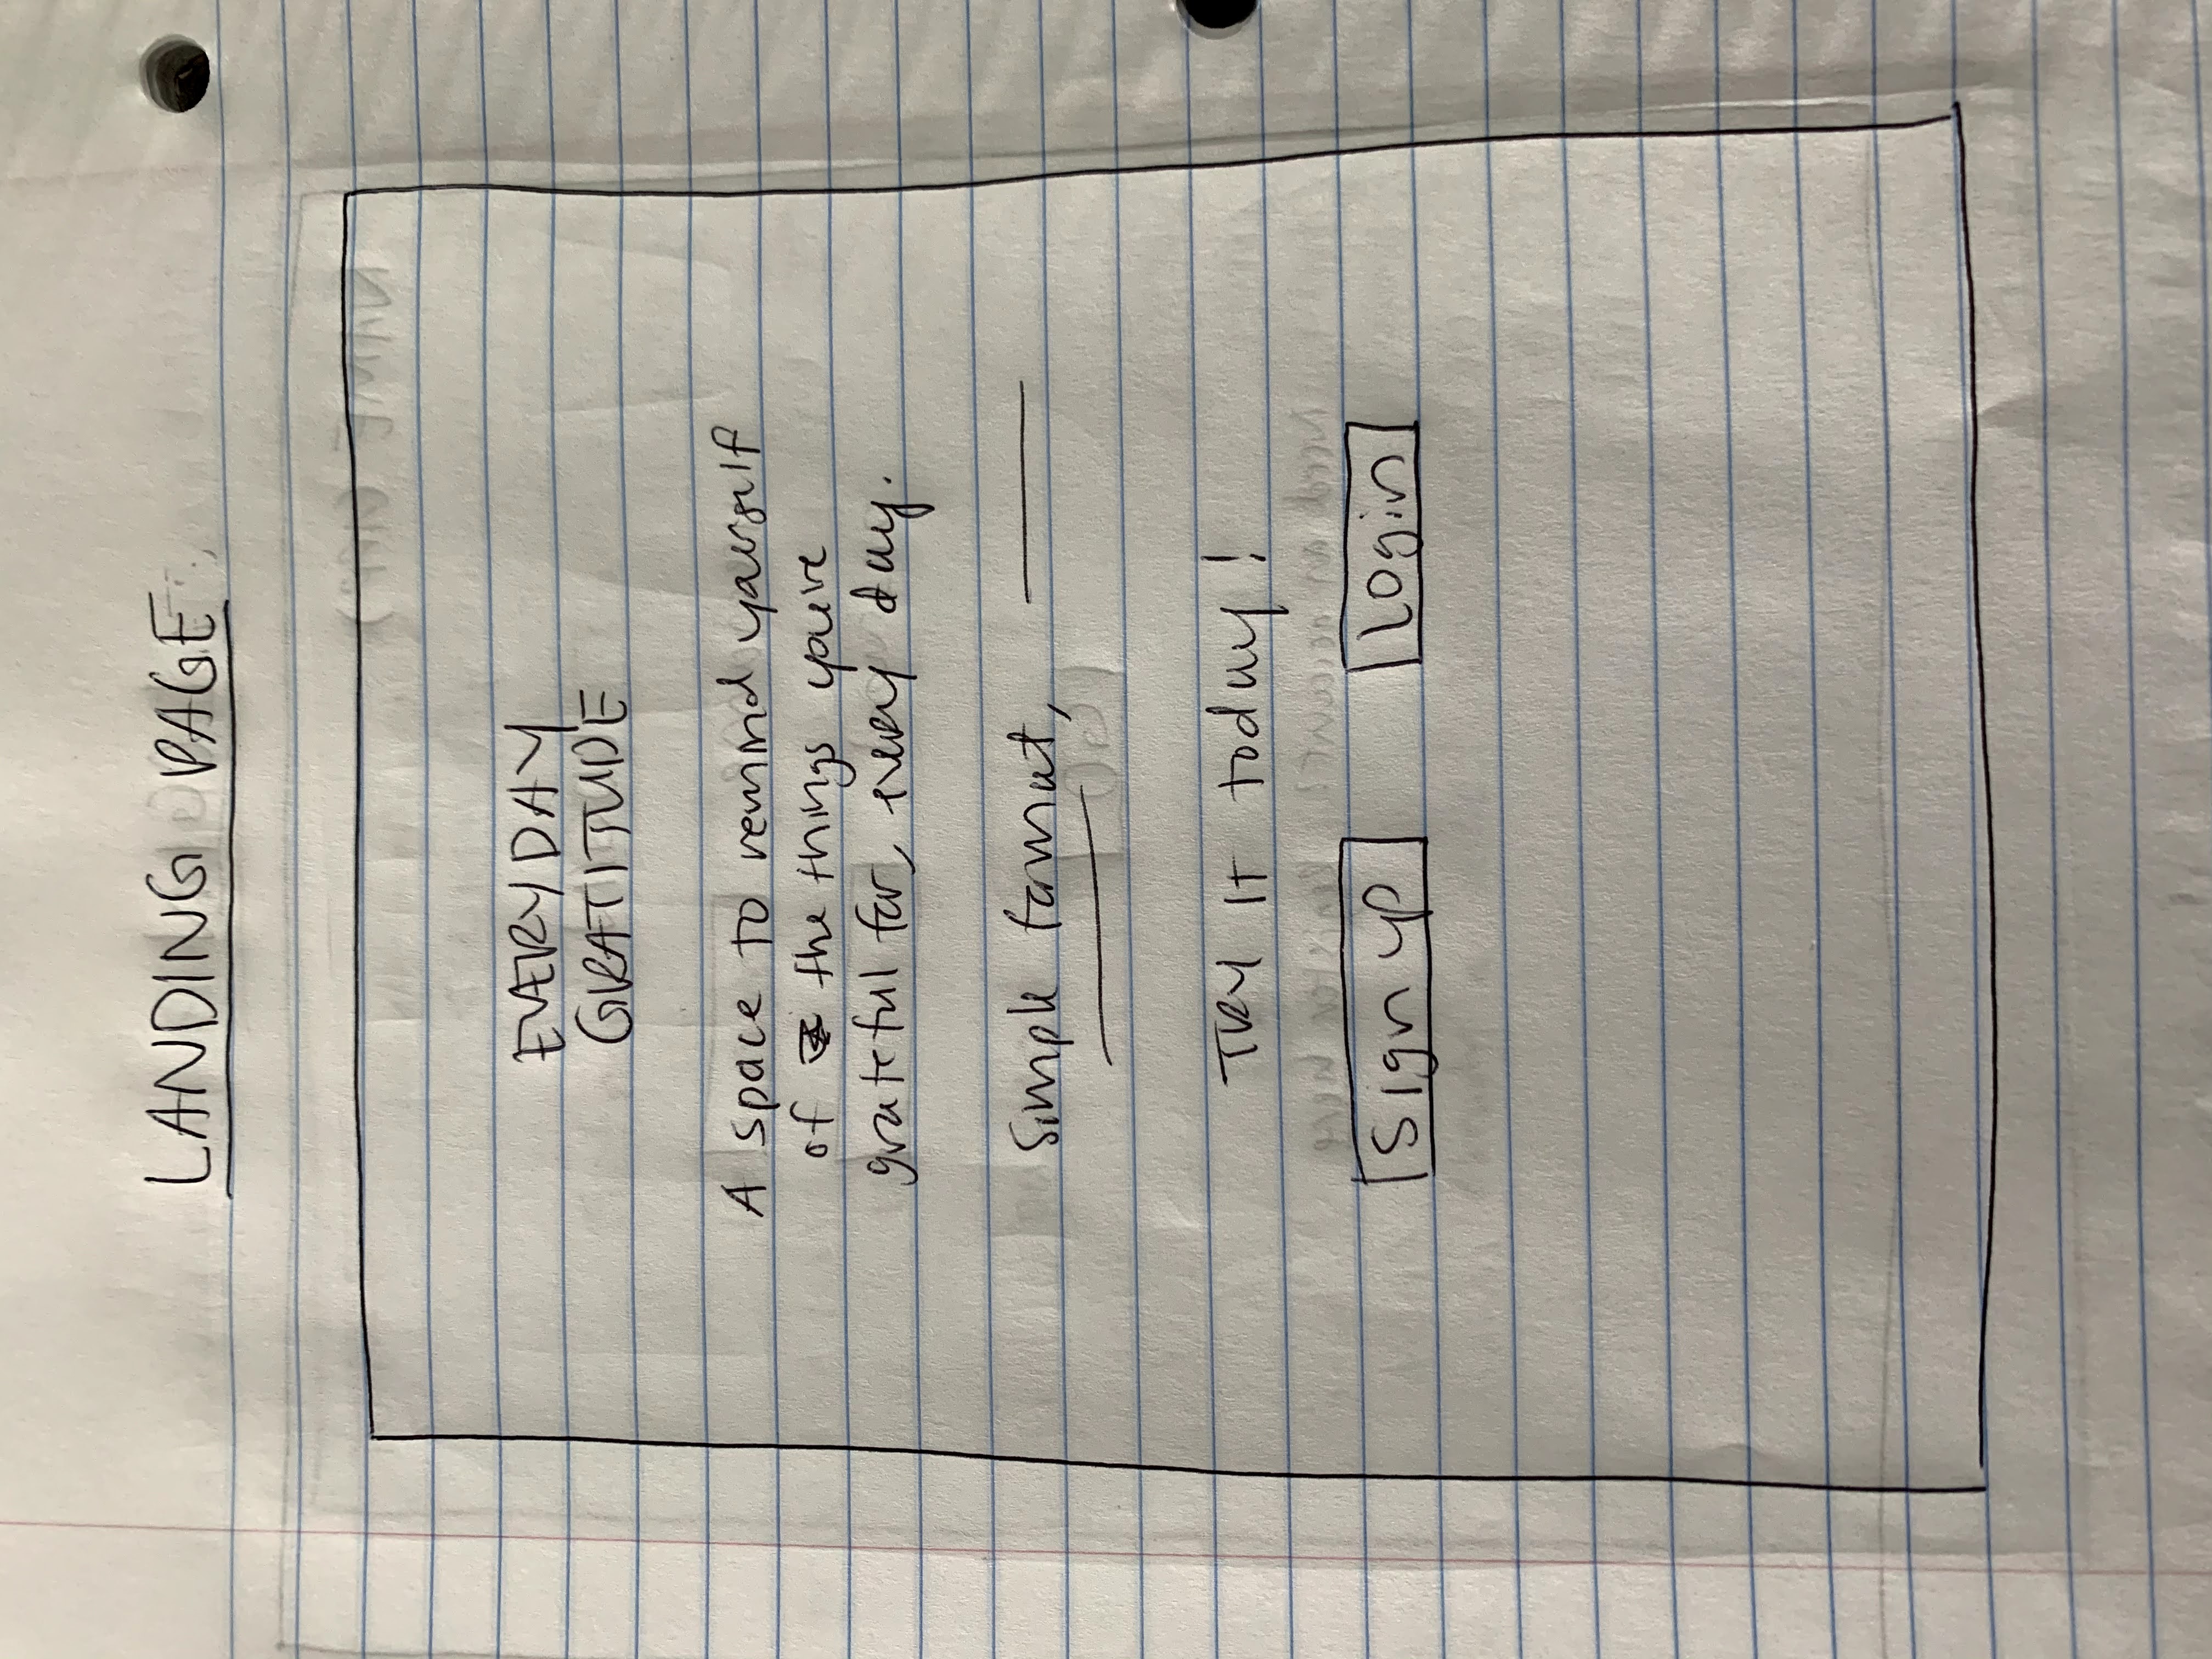 LANDING PAGE
EVERYDAY
GRATITUDE
A space to remind yourself
of the things you're
grateful for, every day.
Simple format,
TRY It today!
Sign up
Login